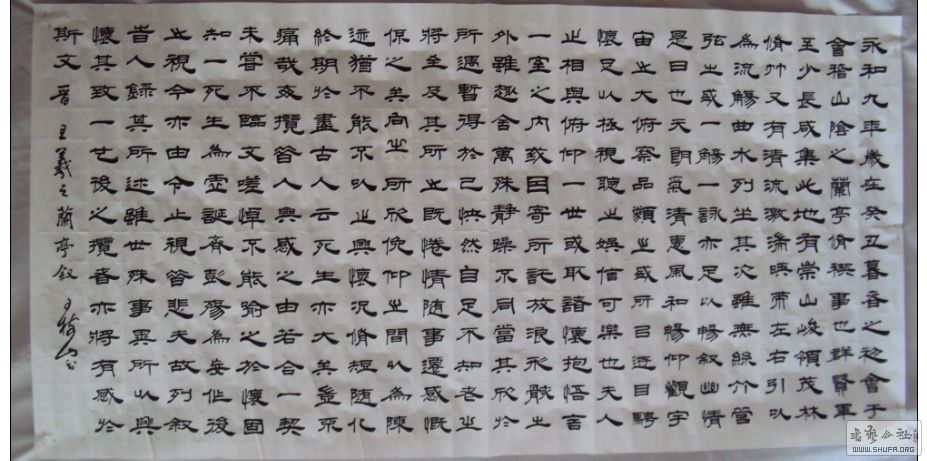 永和九年歲在癸丑暮春之初會于
會稽山陰之蘭亭脩禊事也群賢畢
至少長咸集此地有崇山峻領茂林
脩竹又有清流激湍映帶左右引以
為流觴曲水列坐其次雖無絲竹管
弦之盛一觴一詠亦足以暢敘幽情
是日也天朗氣清惠風和暢仰觀宇
宙之大俯察品類之盛所以遊目騁
懷足以極視聽之娛信可樂也夫人
之相與俯仰一世或取諸懷抱悟言
一室之內或因寄所託放浪形骸之
外雖趣舍萬殊靜躁不同當其欣於
所遇暫得於己怏然自足不知老之
將至及其所之既惓情隨事遷感慨
係之矣向之所欣俛仰之間以為陳
迹猶不能不以之興懷況脩短隨化
終期於盡古人云死生亦大矣豈不
痛哉每攬昔人興感之由若合一契
未嘗不臨文嗟悼不能喻之於懷固
知一死生為虛誕齊彭殤為妄作後
之視今亦由今之視昔悲夫故列敘
昔人錄其所述雖世殊事異所以興
懷其致一也後之攬者亦將有感於
斯文 晉 王羲之蘭亭敘
書藝公社
WWW.SHUFA.ORG